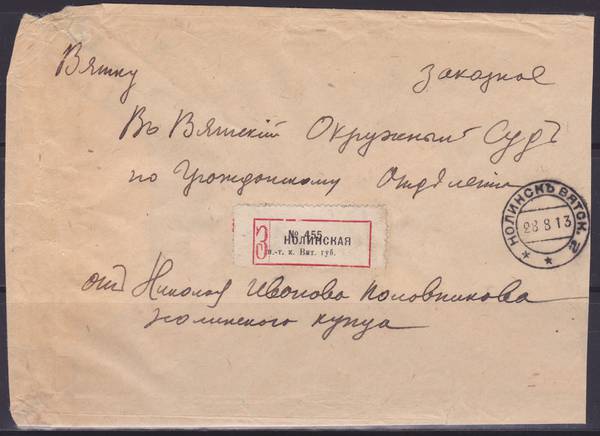 Вятку
Заказное
Въ Вятскій Окружный Судъ
по Гражданскому Отдѣленію
З
№ 455
НОЛИНСКАЯ
п.-т. к. Вят. губ.
НОЛИНСКЪ ВЯТСК.
28 8 13
отъ Николая Иванова Половникова
Нолинского купца